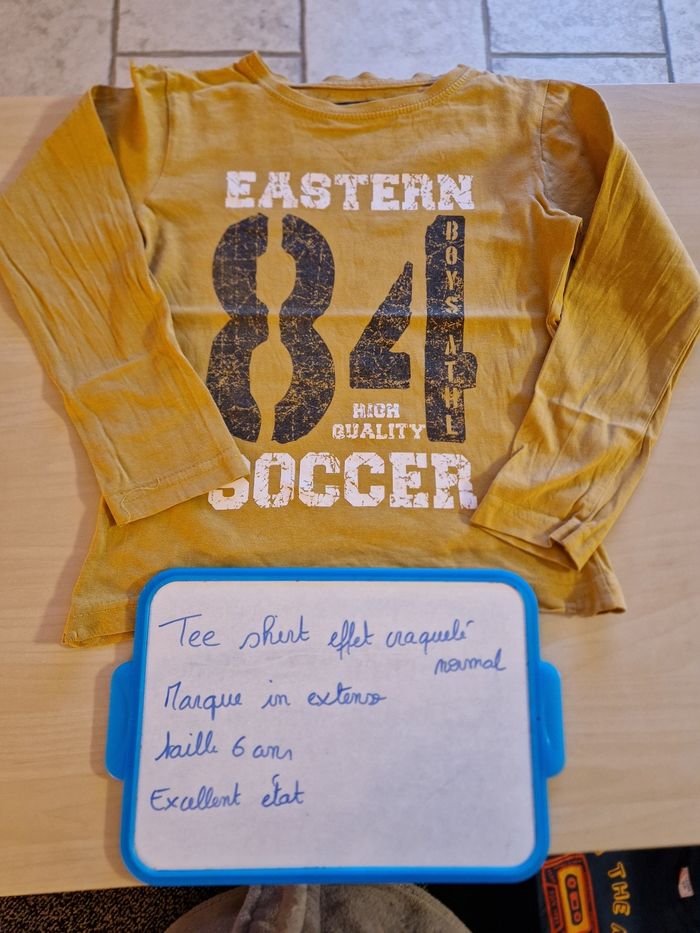 EASTERN
84
BOYS ATHL
HIGH
QUALITY
SOCCER
Tee shirt effet craquelé
normal
Marque in extenso
taille 6 ans
Excellent état
THE